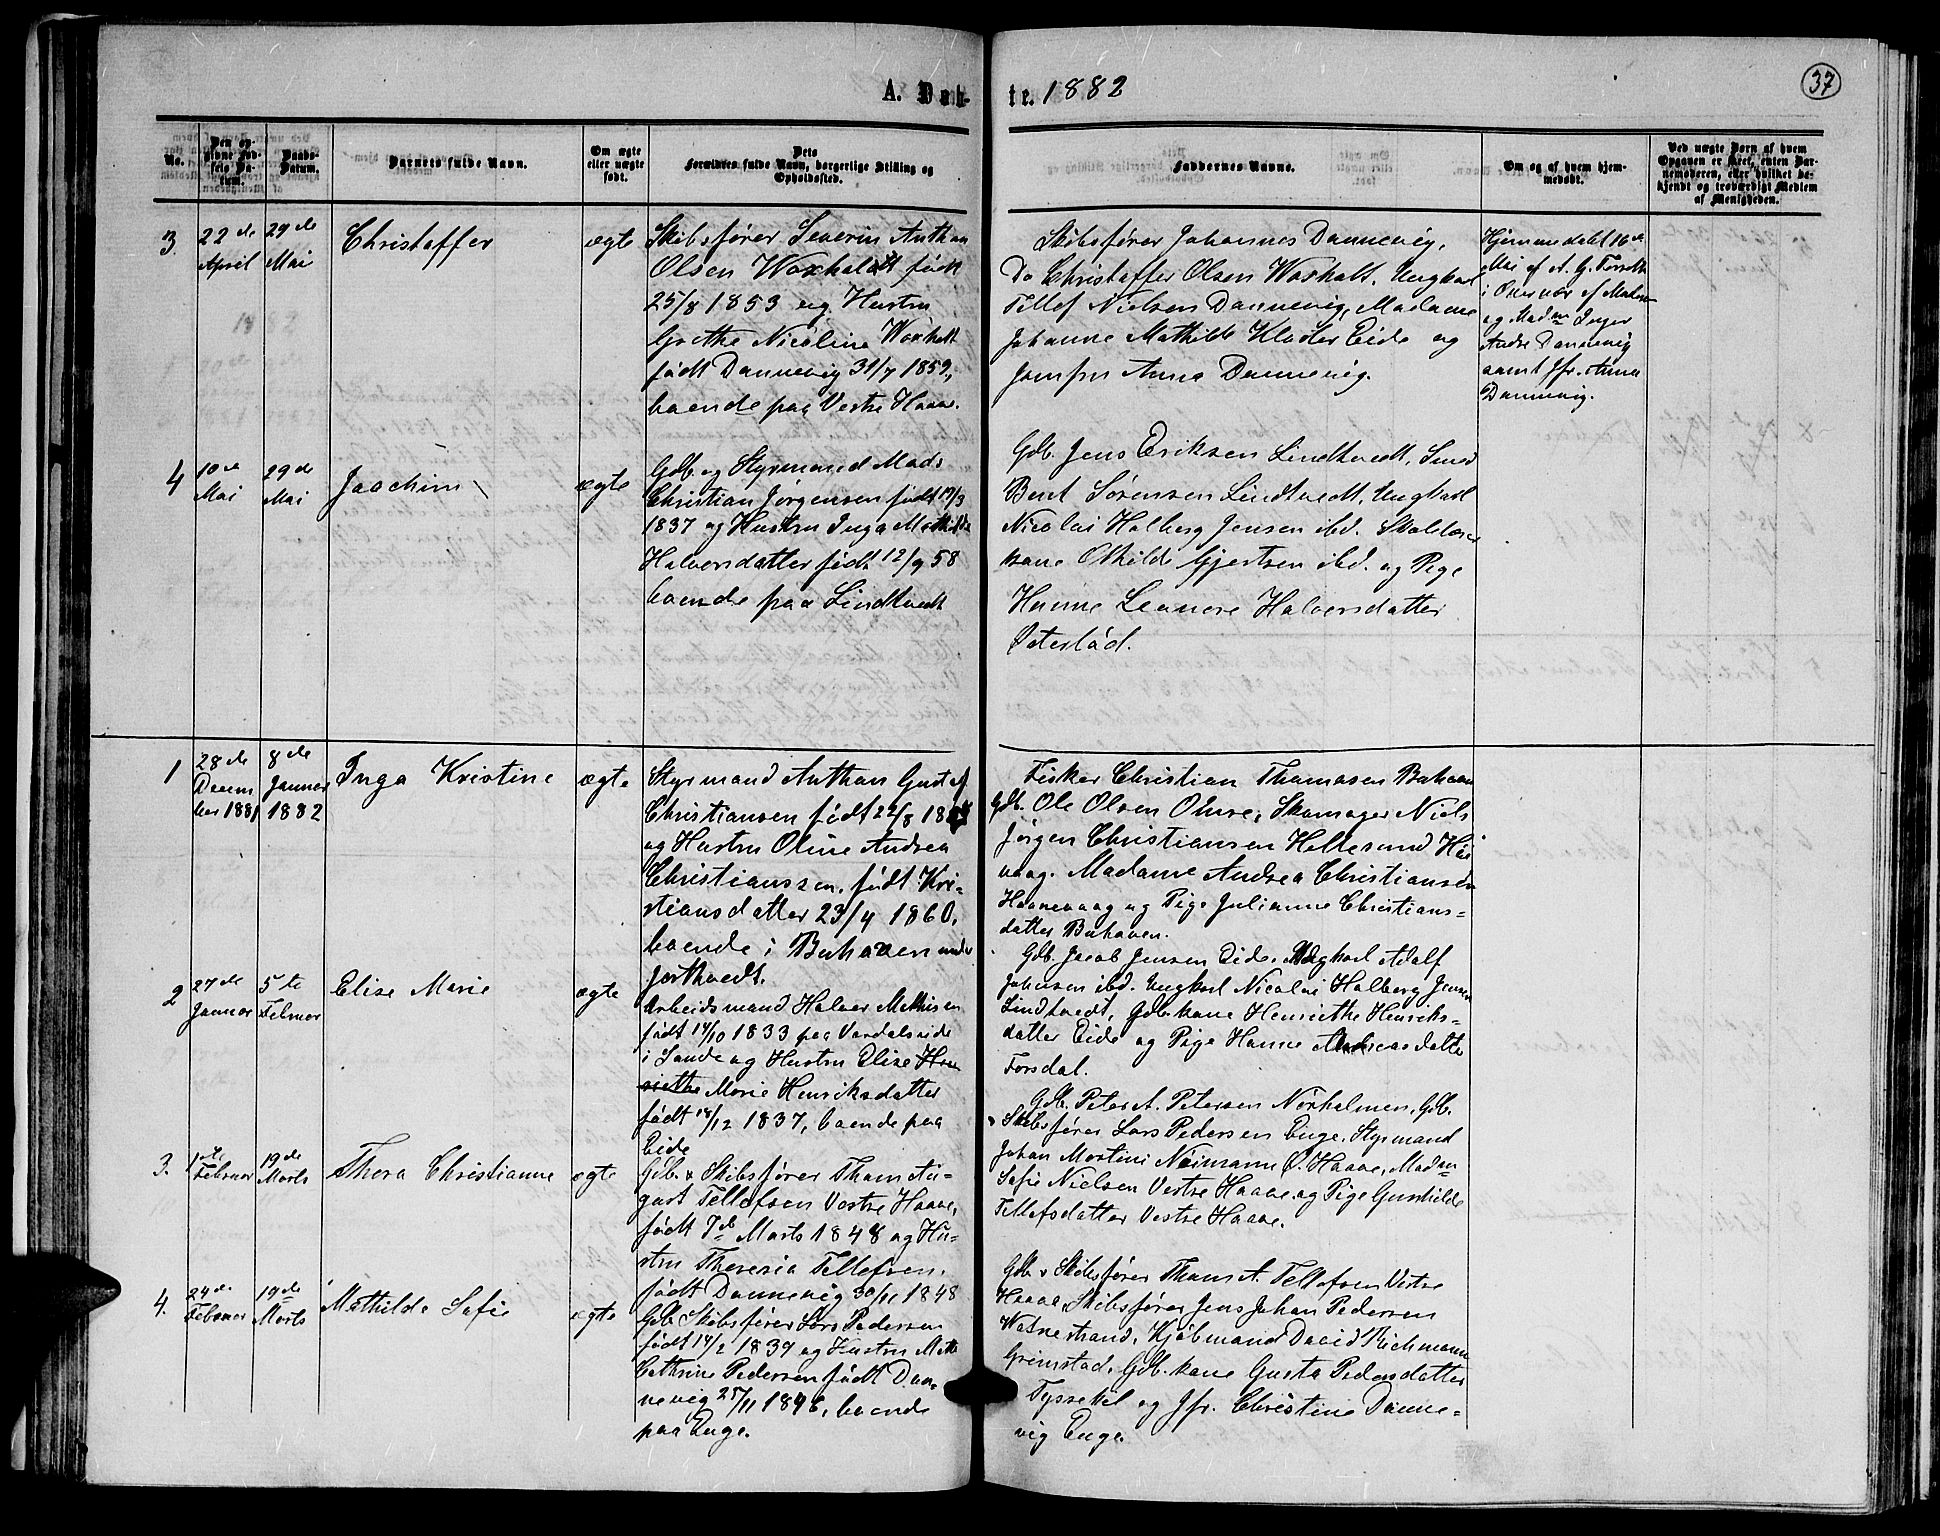 A. Døb-
te. 1882
37
No.
Den op-
givne Fød-
sels Da-
tum.
Daabs-
Datum.
Barnets fulde Navn.
Om ægte
eller uægte
født.
Dets
Forældres fulde Navn, borgerlige Stilling og
Opholdssted.
Faddernes Navne.
Om og af hvem hjem-
medøbt.
Ved uægte Børn af hvem
Opgaven er skeet, enten Bar-
nemoderen, eller hvilket be-
kjendt og troværdigt Medlem
af Menigheden.
3.
22 de
April
29 de
Mai
Christoffer
ægte
Skibsfører Severin Anthon
Olsen Woxholdt født
25/8 1853 og Hustru
Grethe Nicoline Woxholt
født Dannevig 31/7 1859,
boende paa Vestre Haave.
Skibsfører Johannes Dannevig,
Do Christoffer Olsen Woxholt, Ungkarl
Tellef Nielsen Dannevig, Madame
Johanne Mathilde Eide og
Jomfru Anna Dannevig.
Hjemmedøbt 16 de
Mai af A. G.
i Overvær af
og Mad Inger
Dannevig
samt Jfr. Anna
Dannevig.
4
10 de
Mai
29 de
Mai
Joachim
ægte
Gdb. og Styrmand Mads
Christian Jørgensen født 19/3
1837 og Hustru Inga Mathilde
Halvorsdatter født 12/9 58
boende paa Lindtvedt
Gdb. Jens Eriksen Lindtvedt, Smed
Bent Sørensen Lindtvedt, Ungkarl
Nicolai Holberg Jensen ibd. Skolelærer
kone Othilde Gjertsen ibd. og Pige
Hanne Leonore Halvorsdatter
Østerlåd.
1
28 de
Decem
ber 1881
8 de
Januar
1882
Inga Kristine
ægte
Styrmand Anthon Gustaf
Christiansen født 22/8 18
og Hustru Oline Andrea
Christianssen, født Kri-
stiansdatter 23/4 1860,
boende i Buhaven under
Jortvedt.
Fisker Christian Thomasen Buhaven
Gdb. Ole Olsen Omre, Skomager Niels
Jørgen Christiansen Hellesund Høi-
vaag. Madame Andrea Christiansen
Haanevaag og Pige Julianne Christians-
datter Buhaven.
2
27 de
Januar
5 te
Februar
Elise Marie
ægte
Arbeidsmand Halvor Mathisen
født 14/10 1833 paa Vardalseide
i Sande og Hustru Elise Hen
riethe Marie Henriksdatter
født 18/12 1837, boende paa
Eide
Gdb. Jacob Jensen Eide. Ungkarl Adolf
Johnsen ibd. Ungkarl Nicolai Holberg Jensen
Lindtvedt, Gdb. kone Henriethe Henriks-
datter Eide og Pige Hanne Andreasdatter
Forsdal.
3.
1 ste
Februar
19 de
Marts
Thora Christianne
ægte
Gdb. & Skibsfører Thom Au-
gust Tellefsen Vestre Haave,
født 7 de Marts 1848 og Hu-
stru Theresia Tellefsen,
født Dannevig 30/11 1848
Gdb. Peter A. Petersen Nørholmen, Gdb.
& Skibsfører Lars Pedersen Enge, Styrmand
Johan Martini Neimann Ø. Haave, Madam
Sofie Nielsen Vestre Haave og Pige Gunhilde
Tellefsdatter Vestre Haave.
4.
24 de
Februar
19 de
Marts
Mathilde Sofie
ægte
Gdb. Skibsfører Lars Pedersen
født 14/2 1839 og Hustru Mette
Cathrine Pedersen født Dan-
nevig 25/11 1846, boende
paa Enge.
Gdb. & Skibsfører Thom A. Tellefsen Vestre
Haave, Skibsfører Jens Johan Pedersen
Watnestrand, Kjøbmand David Richmann
Grimstad, Gdb. kone Gusta Pedersdatter
Tyssekil og Jfr. Christine Danne-
vig Enge.